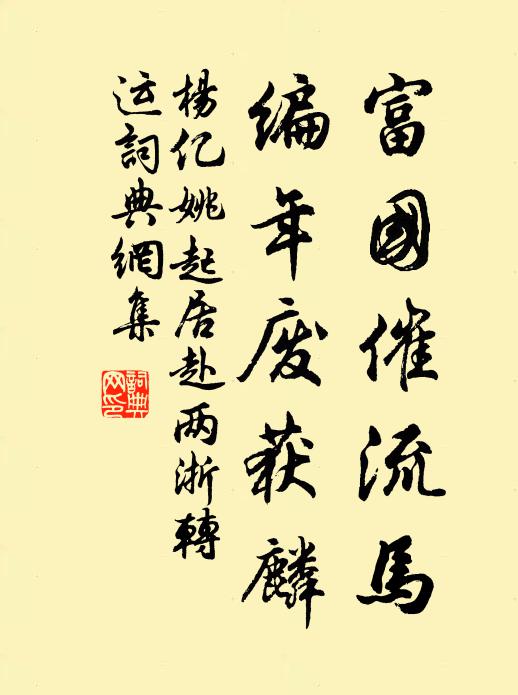 富國催流馬
編年废获麟
楊亿姚起居赴两浙轉
运詞典網集
詞典网印